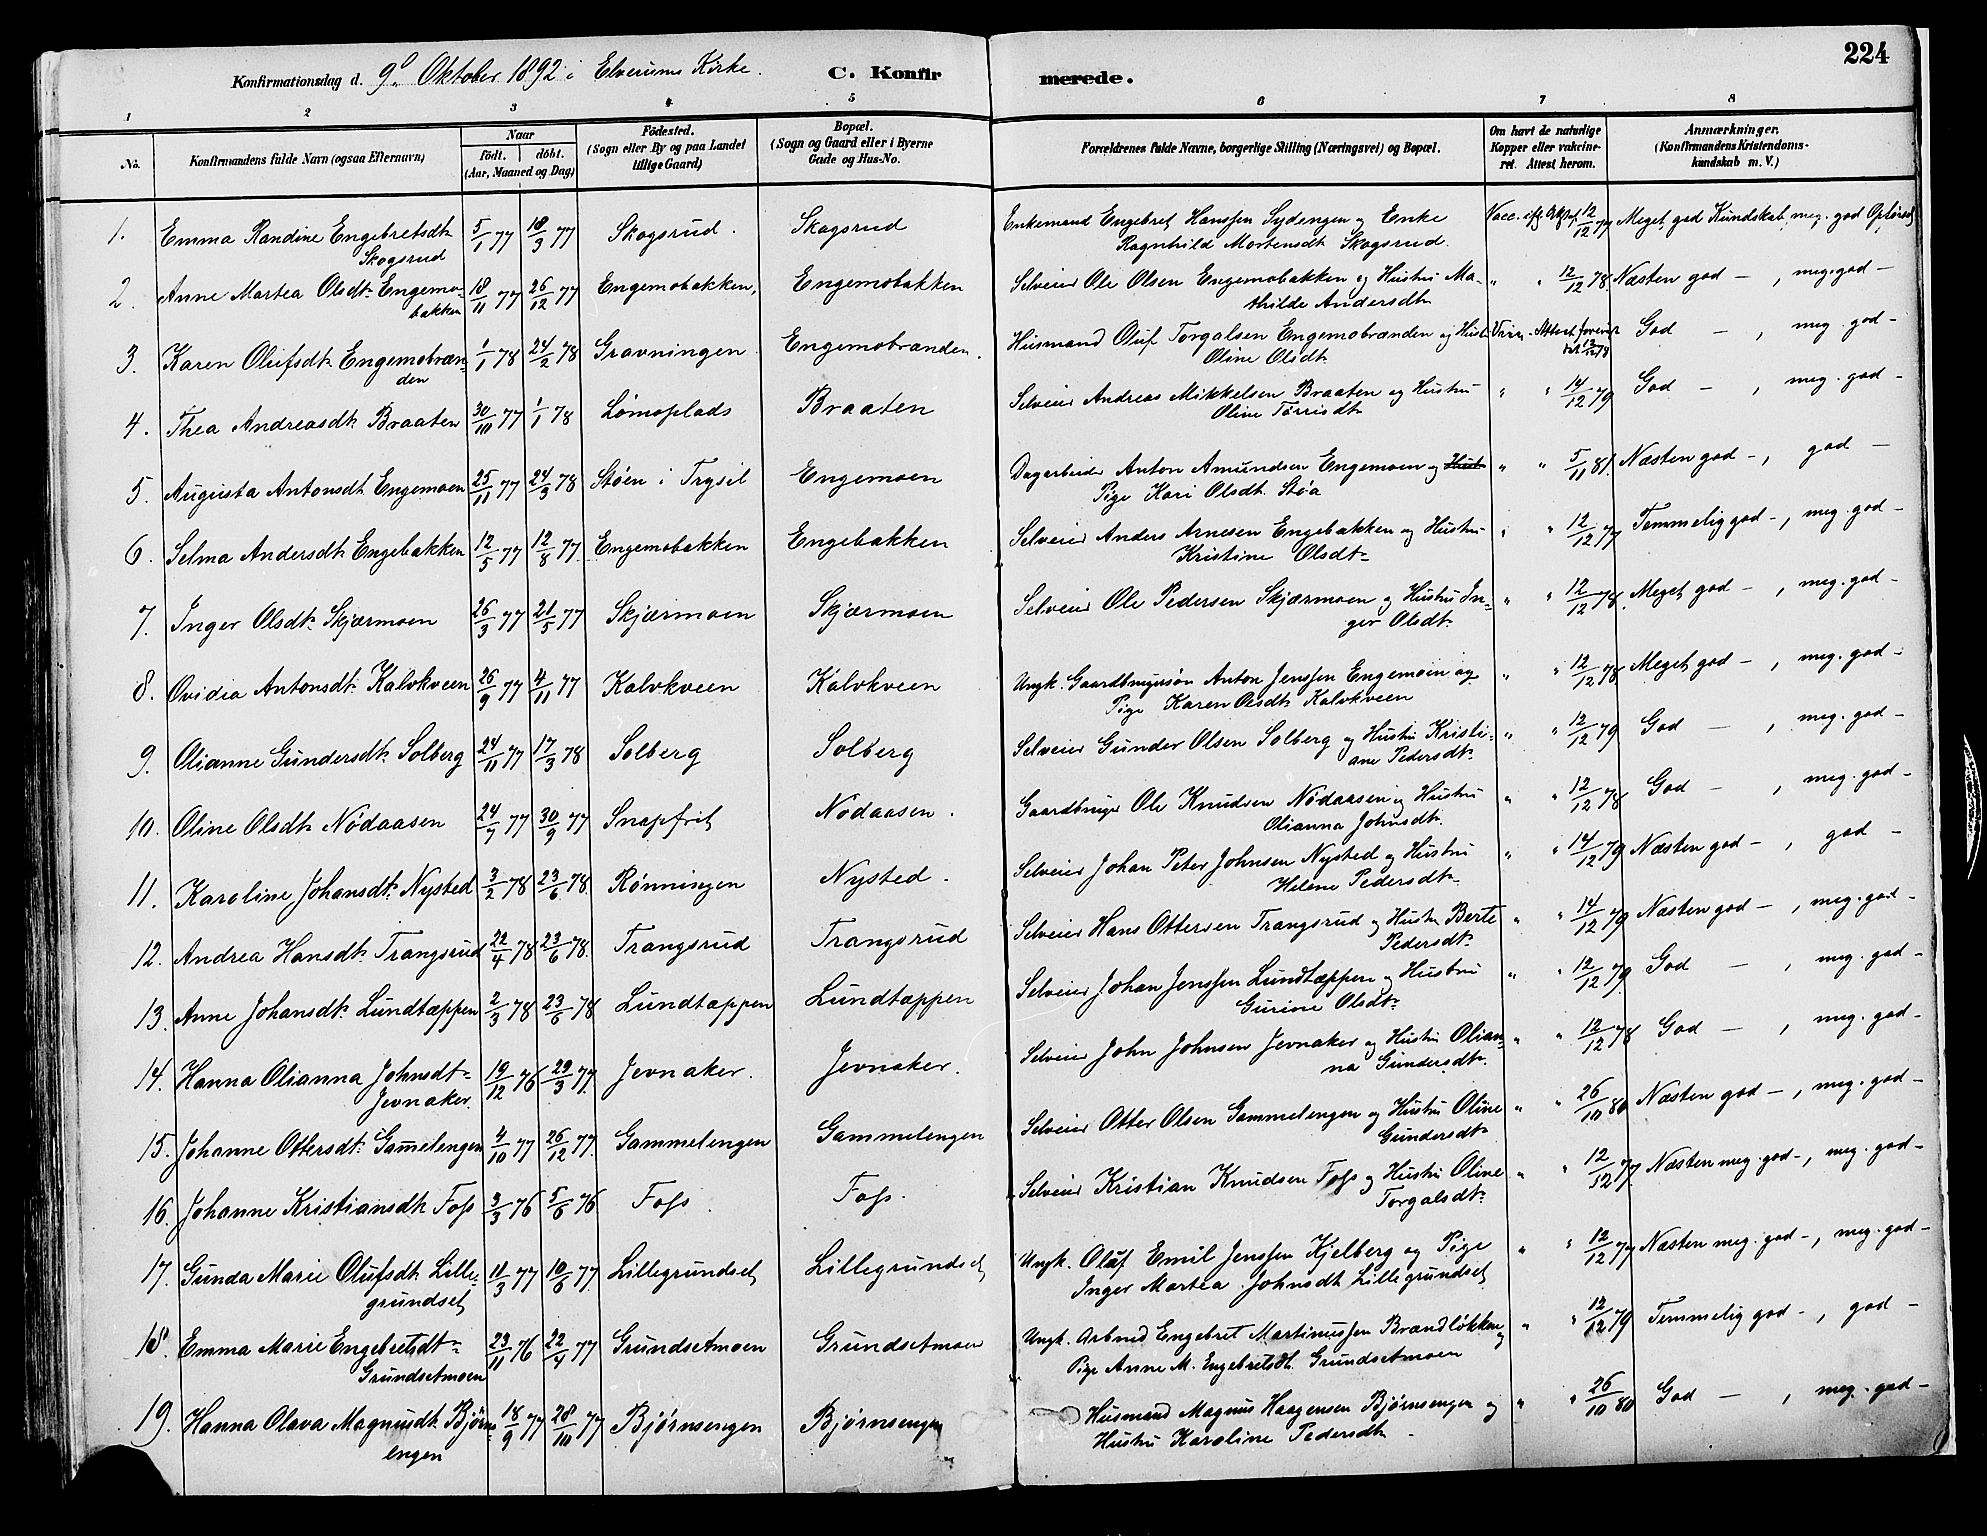 224
Konfirmationsdag d. 9de Oktober 1892 i Elverums Kirke. C. Konfirmerede.
1 2 3 4 5 6 7 8
No. Konfirmandens fulde Navn (ogsaa Efternavn) Naar født. døbt. (Aar, Maaned og Dag) Fødested. (Sogn eller By og paa Landet tillige Gaard) Bopæl. (Sogn og Gaard eller i Byerne Gade og Hus-No. Forældrenes fulde Navne, borgerlige Stilling (Næringsvei) og Bopæl. Om havt de naturlige Kopper eller vakcineret. Attest herom. Anmærkninger. (Konfirmandens Kristendomskundskab m. V.)
1. Emma Randine Engebretsdt. 5/1 77 18/3 77 Skogsrud. Skogsrud Enkemand Engebret Hanssen Sydengen og Enke Vacc. 12/12 77 Meget god Kundskab, meg. god Opførsel
Skogsrud Ragnhild Mortensdt. Skogsrud.
2. Anne Martea Olsdt. Engemo- 18/11 77 26/12 77 Engemobakken, Engemobakken Selveier Ole Olsen Engemobakken og Hustru Ma- " " 12/12 78. Næsten god — , meg. god —
bakken thilde Andersdtr.
3. Karen Olufsdt. Engemobræn- 1/1 78 24/2 78 Gravningen. Engemobrænden. Husmand Oluf Torgalsen Engemobrænden og Hust. God — , meg. god —
den Oline Olsdt.
4. Thea Andreasdt. Braaten 30/10 77 1/1 78 Lømoplads Braaten Selveier Andreas Mikkelsen Braaten og Hustru " " 14/12 79 God — , meg. god —
Oline Tørrisdt.
5. Augusta Antonsdt. Engemoen 25/11 77 24/3 78 Støen i Trysil Engemoen Dagarbeider Anton Amundsen Engemoen og Hust " " 5/11 81. Næsten god —, god —
Pige Kari Olsdt. Støa
6. Selma Andersdt. Engebakken 12/5 77 12/8 77. Engemobakken Engebakken Selveier Anders Arnesen Engebakken og Hustru " " 12/12 77 Temmelig god —, meg. god —
Kristine Olsdt.
7. Inger Olsdt. Skjærmoen 26/3 77 21/5 77 Skjærmoen Skjærmoen Selveier Ole Pedersen Skjærmoen og Hustru In- " " 12/12 78. Meget god — , meg. god —
ger Olsdt.
8. Ovidia Antonsdt. Kalvkveen 26/9 77 4/11 77 Kalvkveen Kalvkveen Ungk. Gaardbrugersøn Anton Jenssen Engemoen og " " 12/12 78 Meget god — , meg. god —
Pige Karen Olsdt. Kalvkveen
9. Olianne Gundersdt. Solberg 24/11 77 17/3 78 Solberg Solberg Selveier Gunder Olsen Solberg og Hustru Kristi- " " 12/12 79 God — , meg. god —
ane Pedersdt.
10. Oline Olsdt. Nødaasen 24/7 77 30/9 77 Snapfrit Nødaasen. Gaardbruger Ole Knudsen Nødaasen og Hustru " " 12/12 78 God — , meg. god —
Olianna Johnsdt.
11. Karoline Johansdt. Nysted 3/2 78 23/6 78. Rønningen Nysted. Selveier Johan Peter Johnsen Nysted og Hustru " " 14/12 79 Næsten god — , god —
Helene Pedersdt.
12. Andrea Hansdt. Trangsrud 22/4 78 23/6 78. Trangsrud Trangsrud Selveier Hans Ottersen Trangsrud og Hustr. Berte " " 14/12 79 Næsten god — , meg. god —
Pedersdt.
13. Anne Johansdt. Lundtæppen 2/3 78 23/6 78 Lundtæppen Lundtæppen Selveier Johan Jenssen Lundtæppen og Hustru " " 12/12 79. God — , meg. god —
Gurine Olsdt.
14. Hanna Olianna Johnsdt. 19/12 76 29/3 77. Jevnaker. Jevnaker. Selveier John Johnsen Jevnaker og Hustru Olian- " " 12/12 78 God — , meg. god —
Jevnaker. na Gundersdt.
15. Johanne Ottersdt. Gam̅elengen 4/10 77 26/12 77. Gammelengen Gammelengen Selveier Otter Olsen Gammelengen og Hustru Oline " " 26/10 80 Næsten god —, meg. god —
Gundersdt.
16. Johanne Kristiansdt. Foss 3/3 76 5/6 76 Foss. Foss. Selveier Kristian Knudsen Foss og Hustru Oline " " 12/12 77 Næsten meg. god —, meg. god —
Torgalsdt.
17. Gunda Marie Olufsdt. Lille- 11/3 77 10/6 77. Lillegrundset Lillegrundset Ungk. Oluf Emil Jenssen Kjelberg og Pige " " 12/12 77 Næsten meg. god —, meg. god —
grundset Inger Martea Johnsdt. Lillegrundset
18. Emma Marie Engebretsdt. 23/11 76 22/4 77 Grundsetmoen Grundsetmoen Ungk. Arbeid. Engebret Martinussen Brændløkken og " " 12/12 79 Temmelig god —, god —
Grundsetmoen Pige Anne M. Engebretsdt. Grundsetmoen
19. Hanna Olava Magnusdt. Bjørns- 18/9 77 28/10 77 Bjørnsengen Bjørnsengen Husmand Magnus Haagensen Bjørnsengen og " " 26/10 80 God — , meg. god —
engen Hustru Karoline Pedersdt.